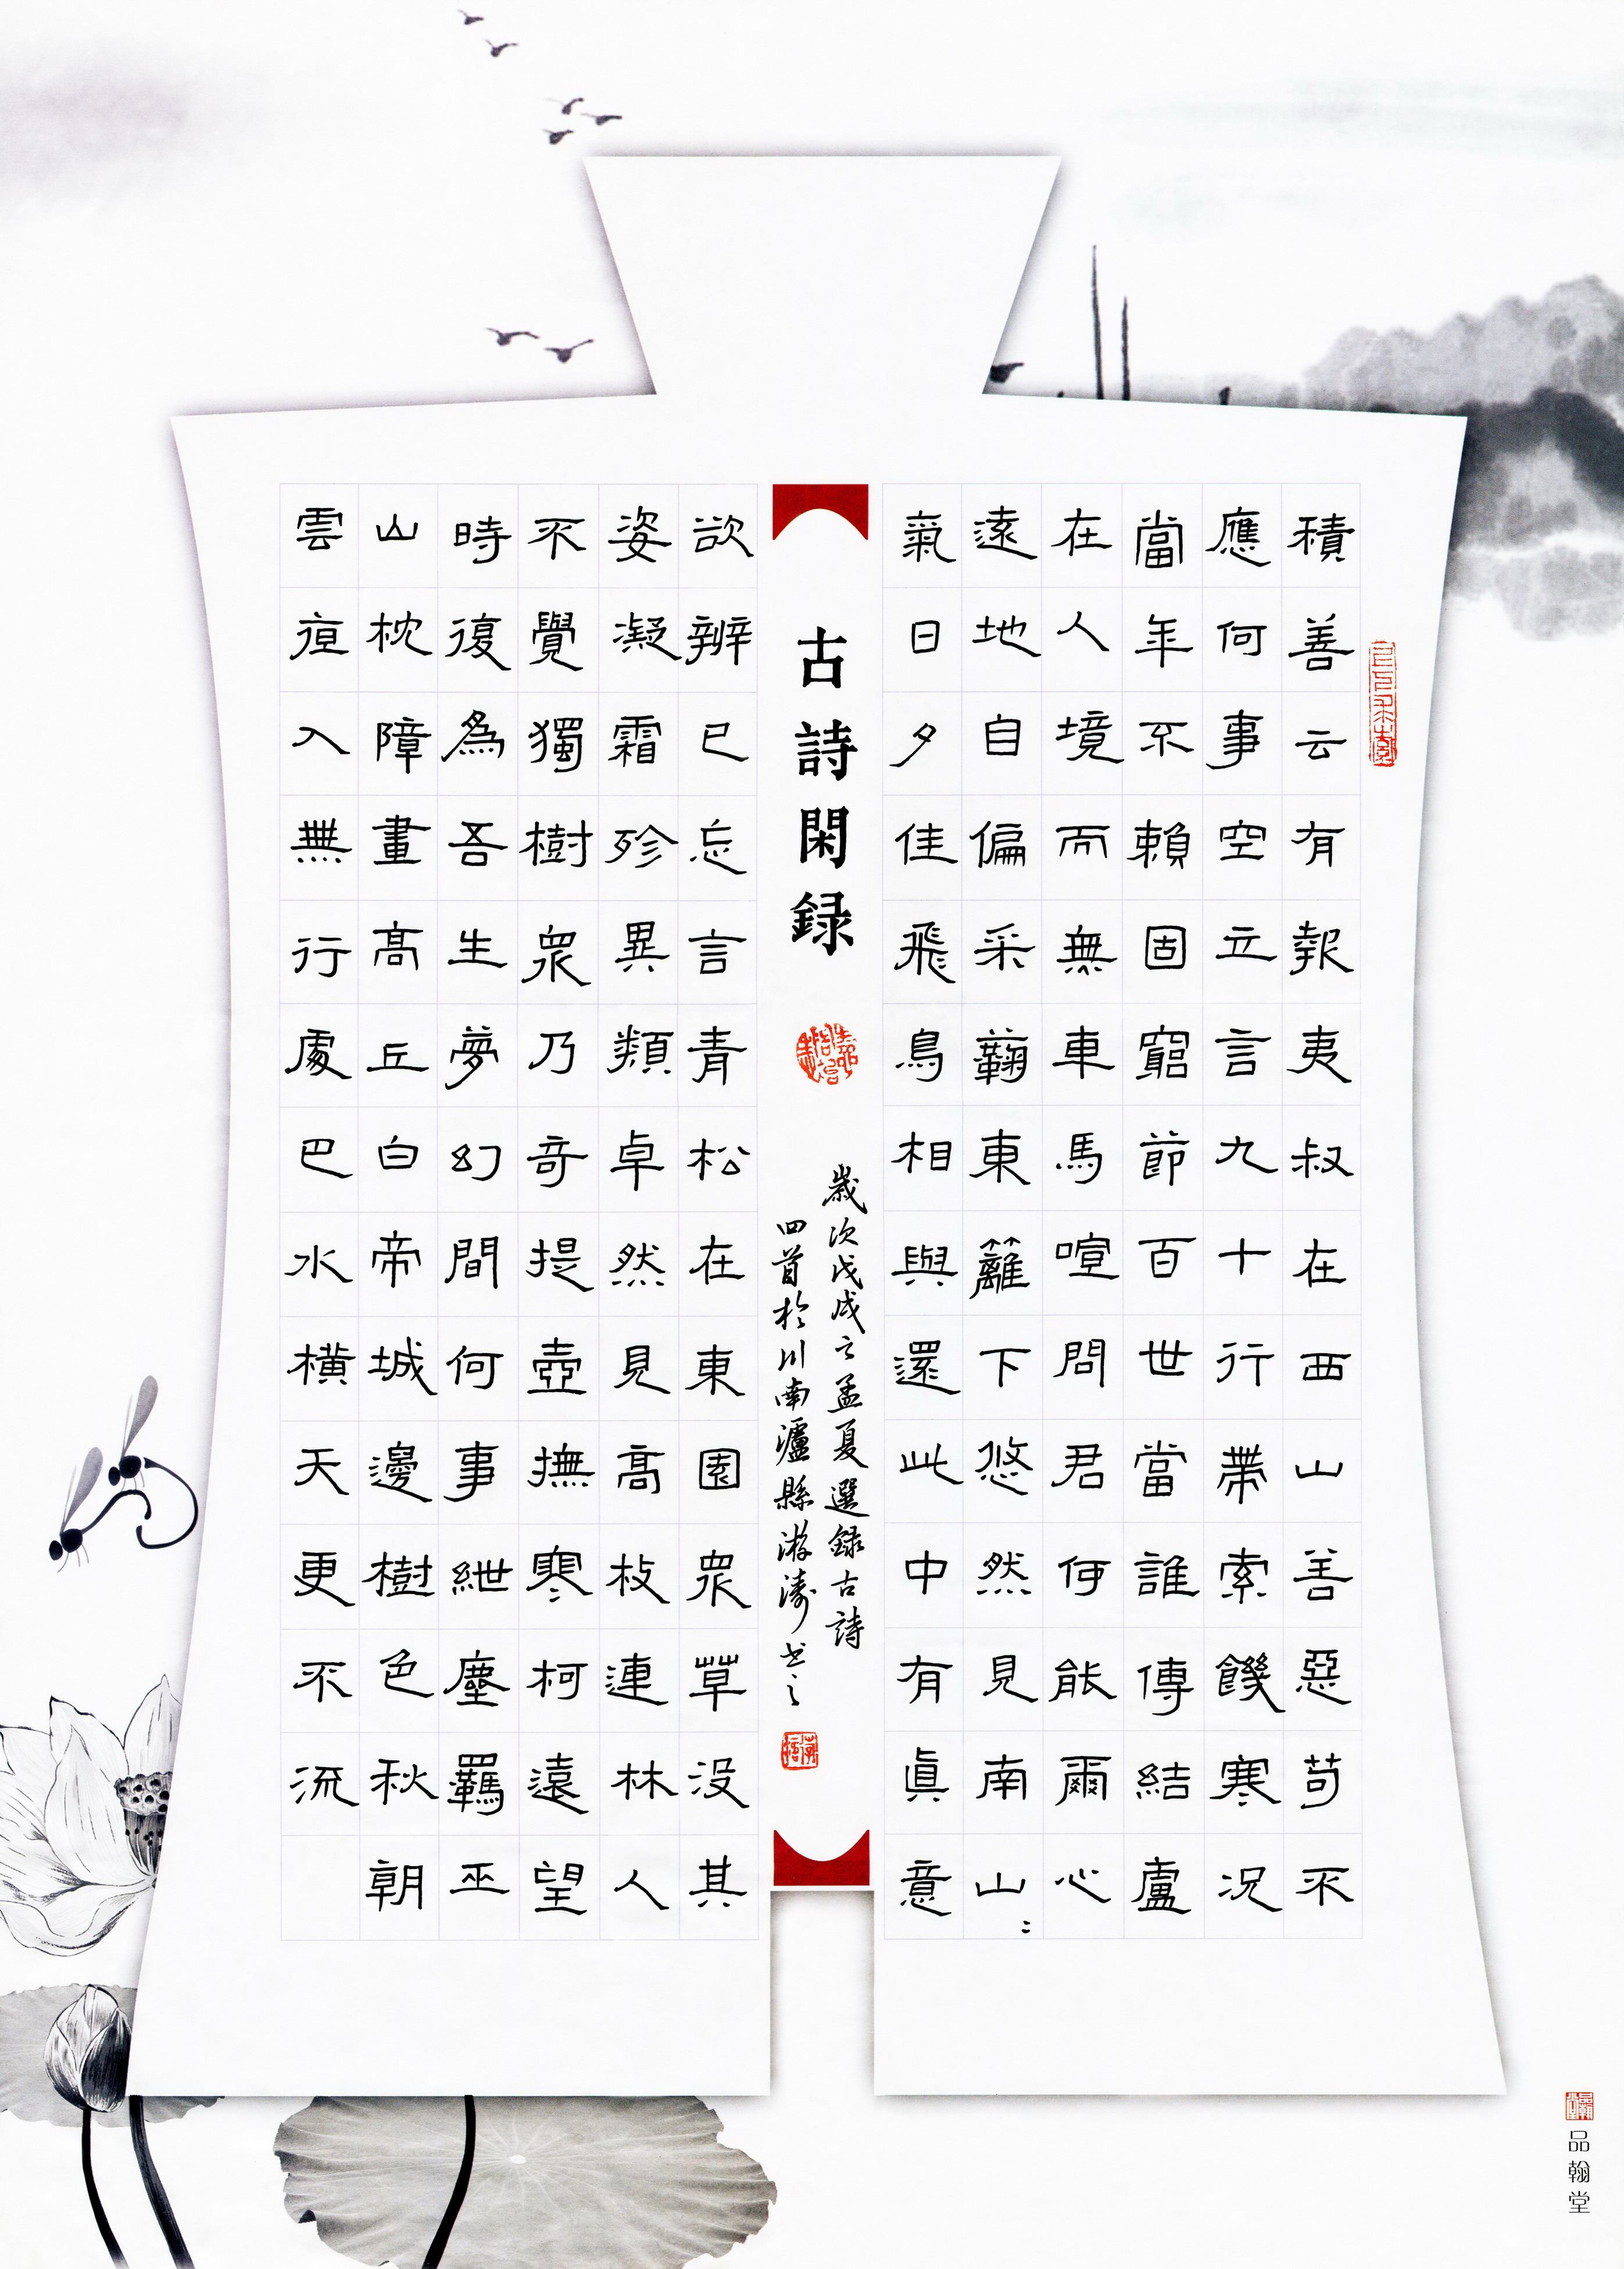 積善云有報夷叔在西山善惡苟不
應何事空立言九十行帶索饑寒况
當年不賴固窮節百世當誰傳結廬
在人境而無車馬喧問君何能爾心
遠地自偏采蘜東籬下悠然見南山〻
氣日夕佳飛鳥相與還此中有眞意
古詩閑録
歲次戊戌之孟夏選録古詩
四首於川南瀘縣游濤書之
欲辨已忘言青松在東園衆草没其
姿凝霜殄異類卓然見高枝連林人
不覺獨樹衆乃奇提壺撫寒柯遠望
時復為吾生夢幻間何事紲塵羈巫
山枕障畫高丘白帝城邊樹色秋朝
雲夜入無行處巴水橫天更不流
品翰堂